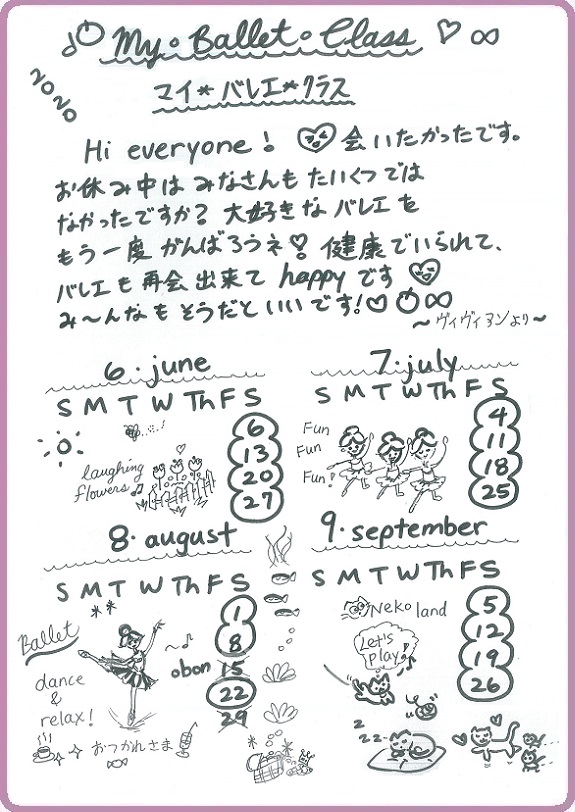 My・Ballet・Class ♡ ∞
2020
マイ*バレエ*クラス
Hi everyone! ♡ 会いたかったです。
お休み中は みなさんも たいくつでは
なかったですか? 大好きな バレエを
もう一度 がんばろうネ! 健康でいられて、
バレエも 再会 出来て happy です ♡
み〜んなも そうだと いいです!♡ ∞
〜ヴィヴィアンより〜
6・june
S M T W Th F S
6
13
20
27
laughing
flowers♫
7・july
S M T W Th F S
4
11
18
25
Fun
Fun
Fun!
8・august
S M T W Th F S
1
8
obon 15
22
29
Ballet
dance
&
relax!
おつかれさま
9・september
S M T W Th F S
5
12
19
26
Neko land
Let's
play!
zzz